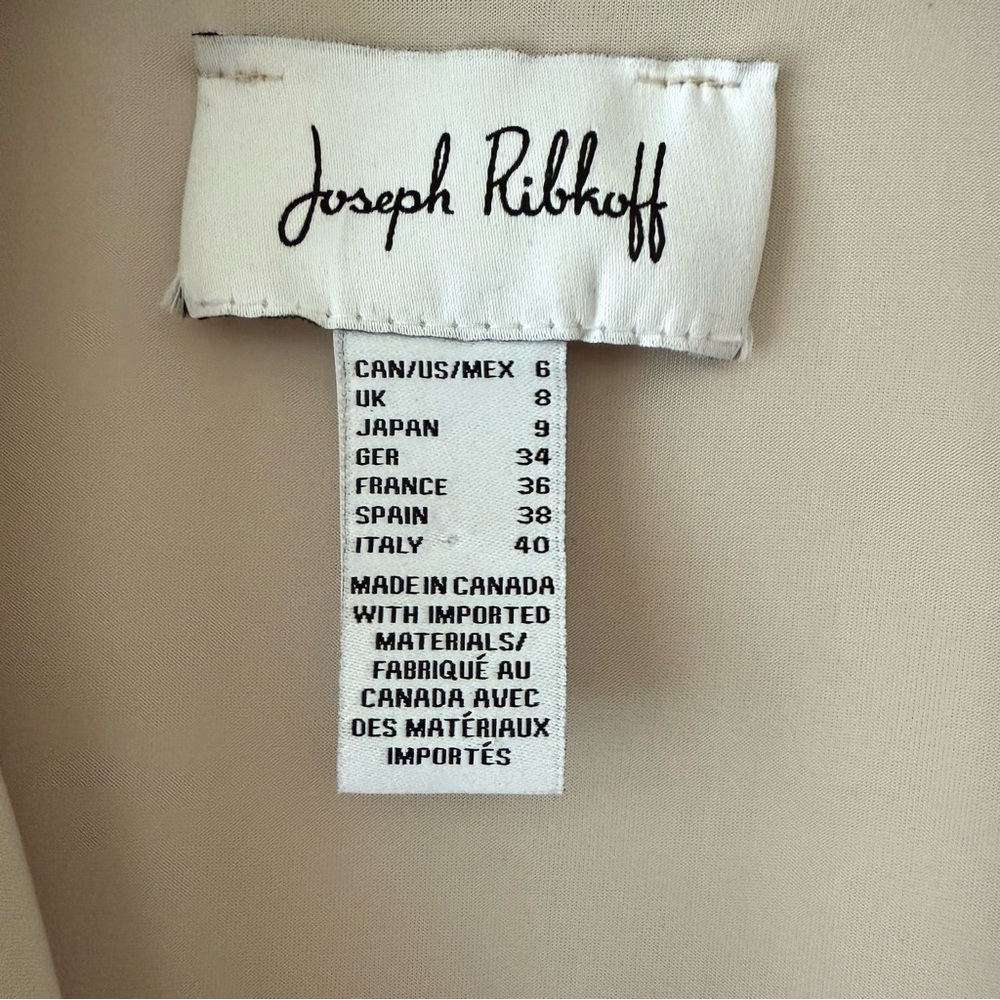 Joseph Ribkoff
CAN/US/MEX 6
UK 8
JAPAN 9
GER 34
FRANCE 36
SPAIN 38
ITALY 40
MADE IN CANADA
WITH IMPORTED
MATERIALS/
FABRIQUÉ AU
CANADA AVEC
DES MATÉRIAUX
IMPORTÉS